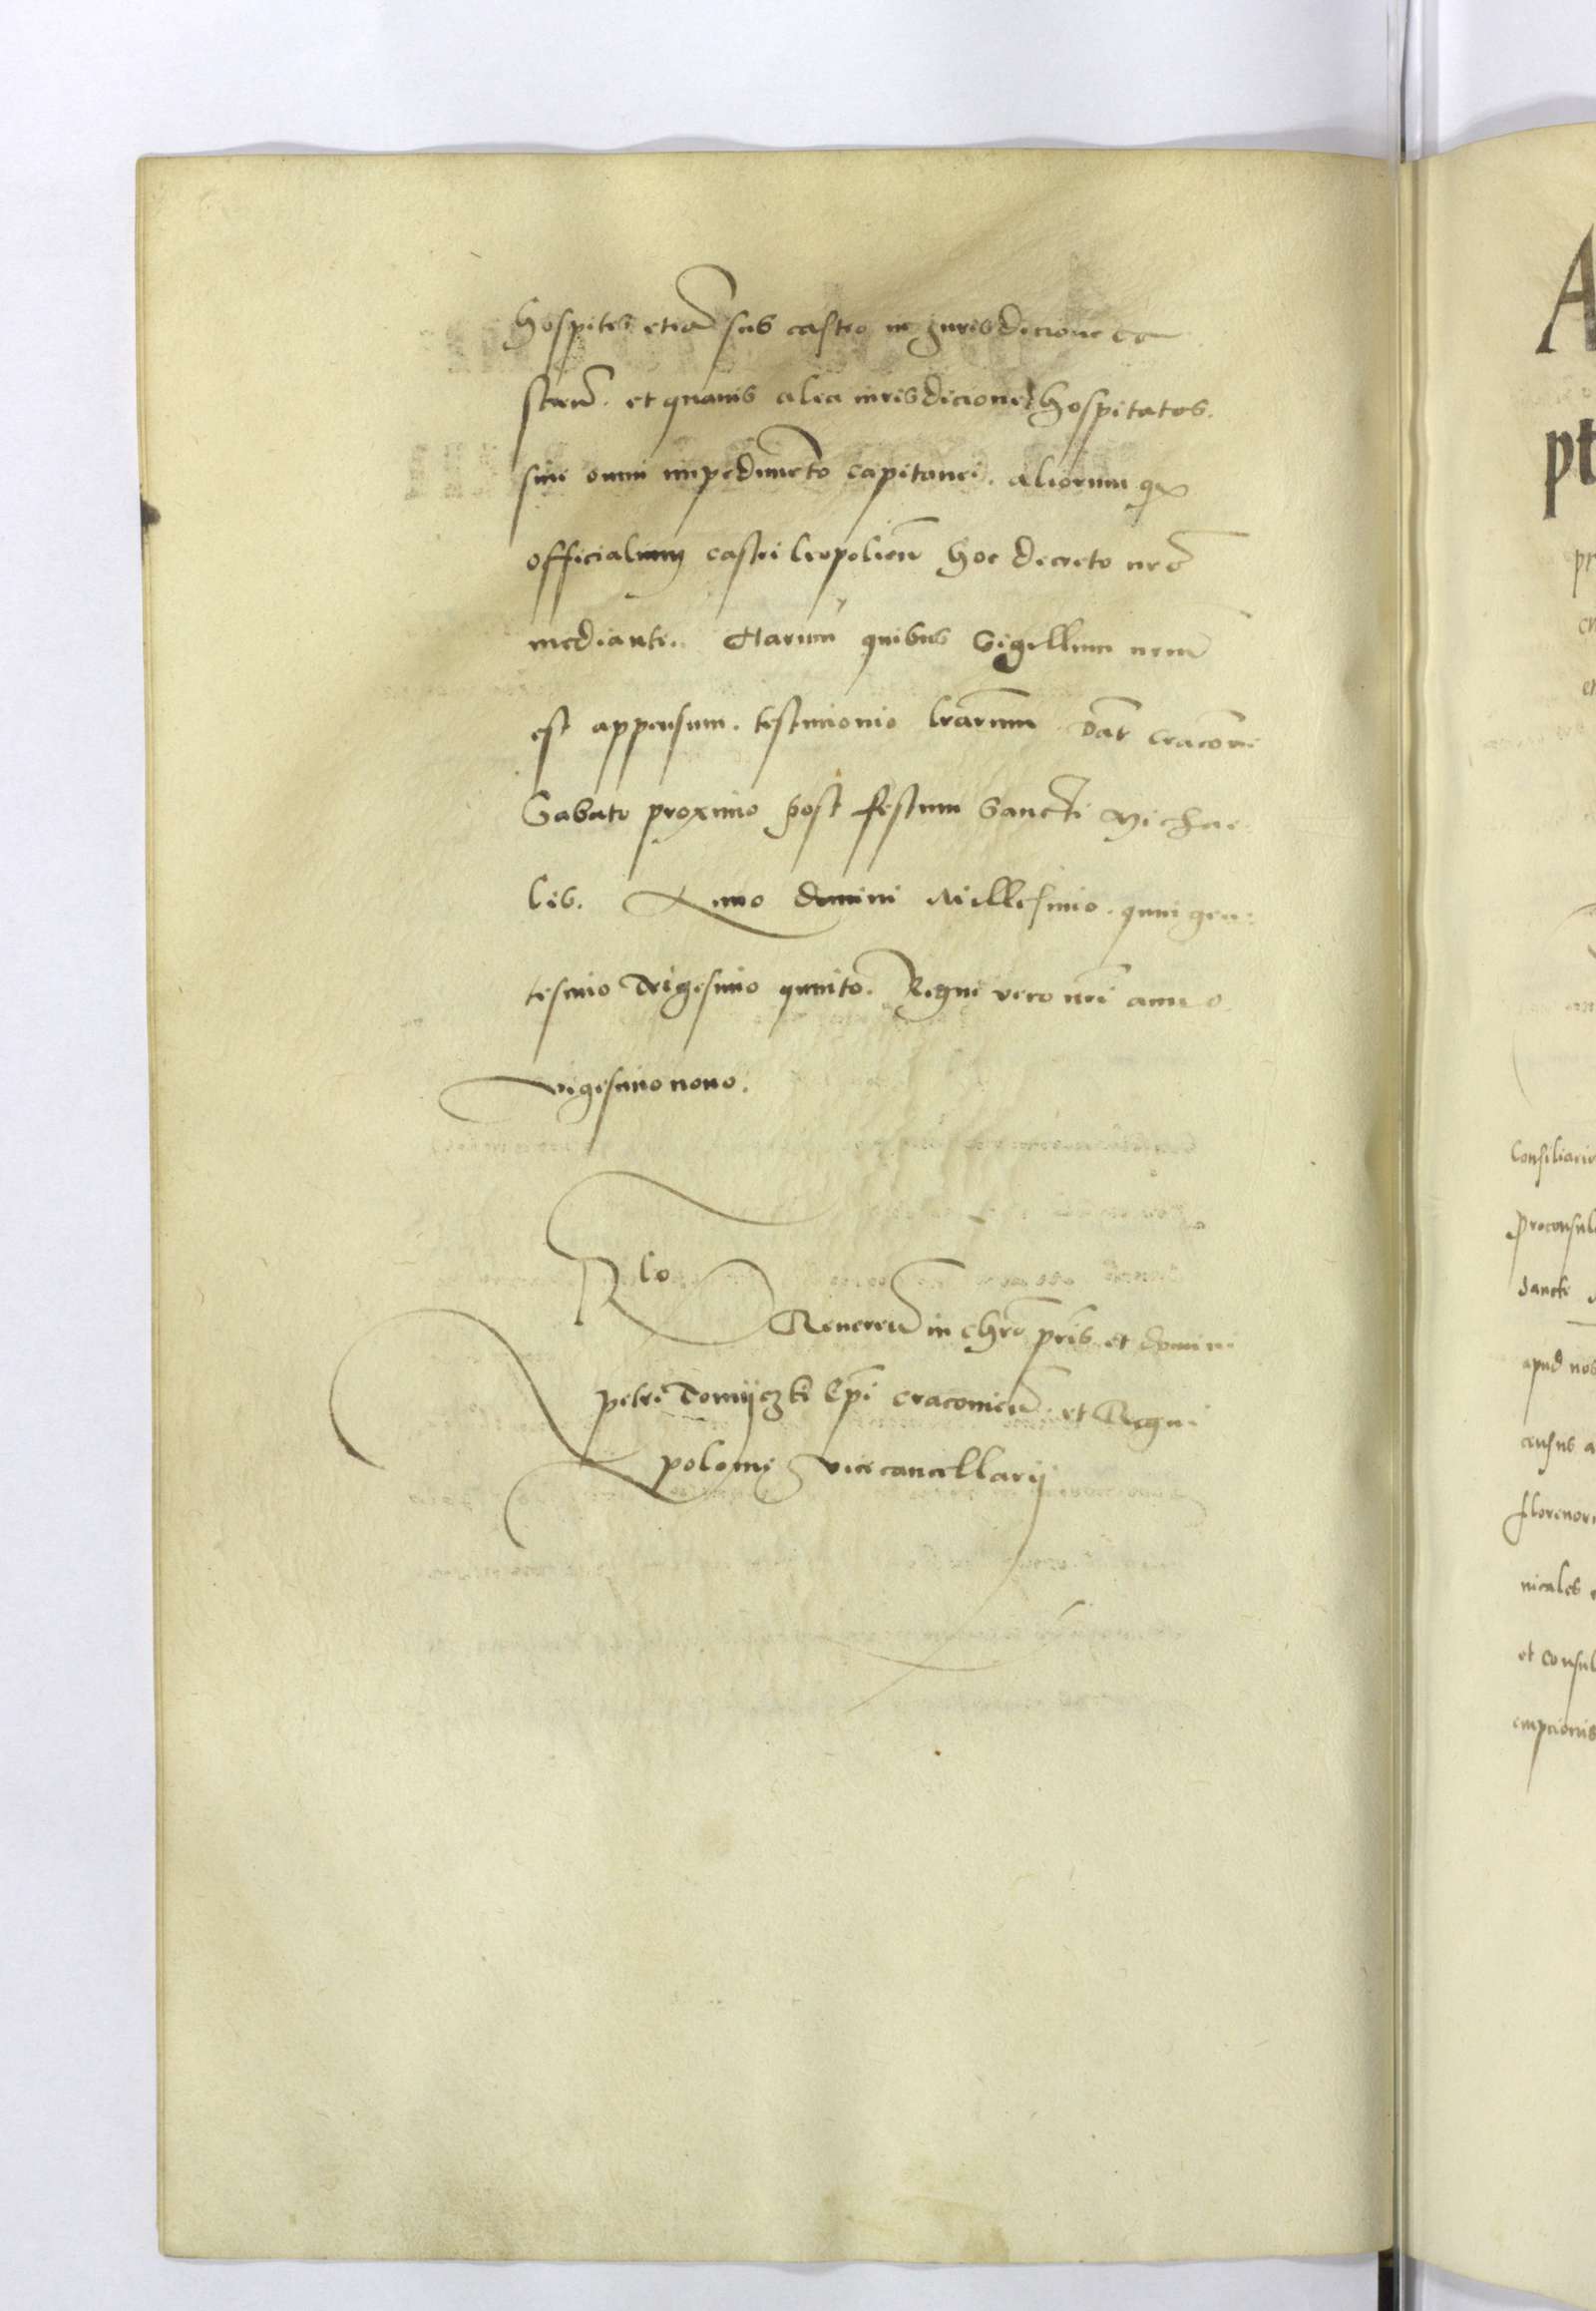 hospites etiã sub castro in Jurisdicione ca
streñ. et quauis alia iurisdicione hospitatos.
sine omni impedimẽto capitanei. aliorumq3
officialium castri leopolieñ hoc decreto nrõ
mediante. Harum quibus Sigillum nrm̃
est appensum. testimonio lrãrum Dat̃ cracouie
Sabato proximo post festum Sancti Michae
lis. Anno domini Millesimo. quingen
tesimo Trigesimo quinto. Regni vero nrĩ anno
vigesimonono.
Rlo
Reuereñ in chrõ pris̃ et domini
petri Tomijczki Epĩ cracouieñ. et Regni
polonie vicecancellarij
A
pt
pr
Consiliario
Proconsul
sancti
apud nos
census a
florenor
nicales
et consul
empcionis